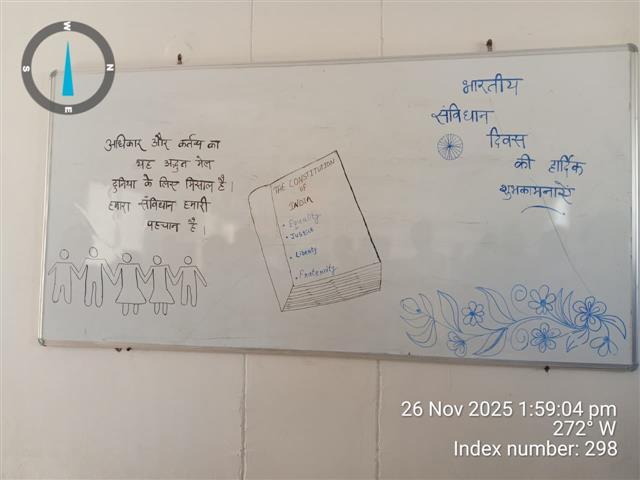 अधिकार और कर्तव्य का
यह अद्भुत मेल
दुनिया के लिए मिसाल है।
हमारा संविधान हमारी
पहचान है।
THE CONSTITUTION
OF
INDIA
• Equality
• Justice
• Liberty
• Fraternity
भारतीय
संविधान
दिवस
की हार्दिक
शुभकामनाएं
W
S
N
E
26 Nov 2025 1:59:04 pm
272° W
Index number: 298